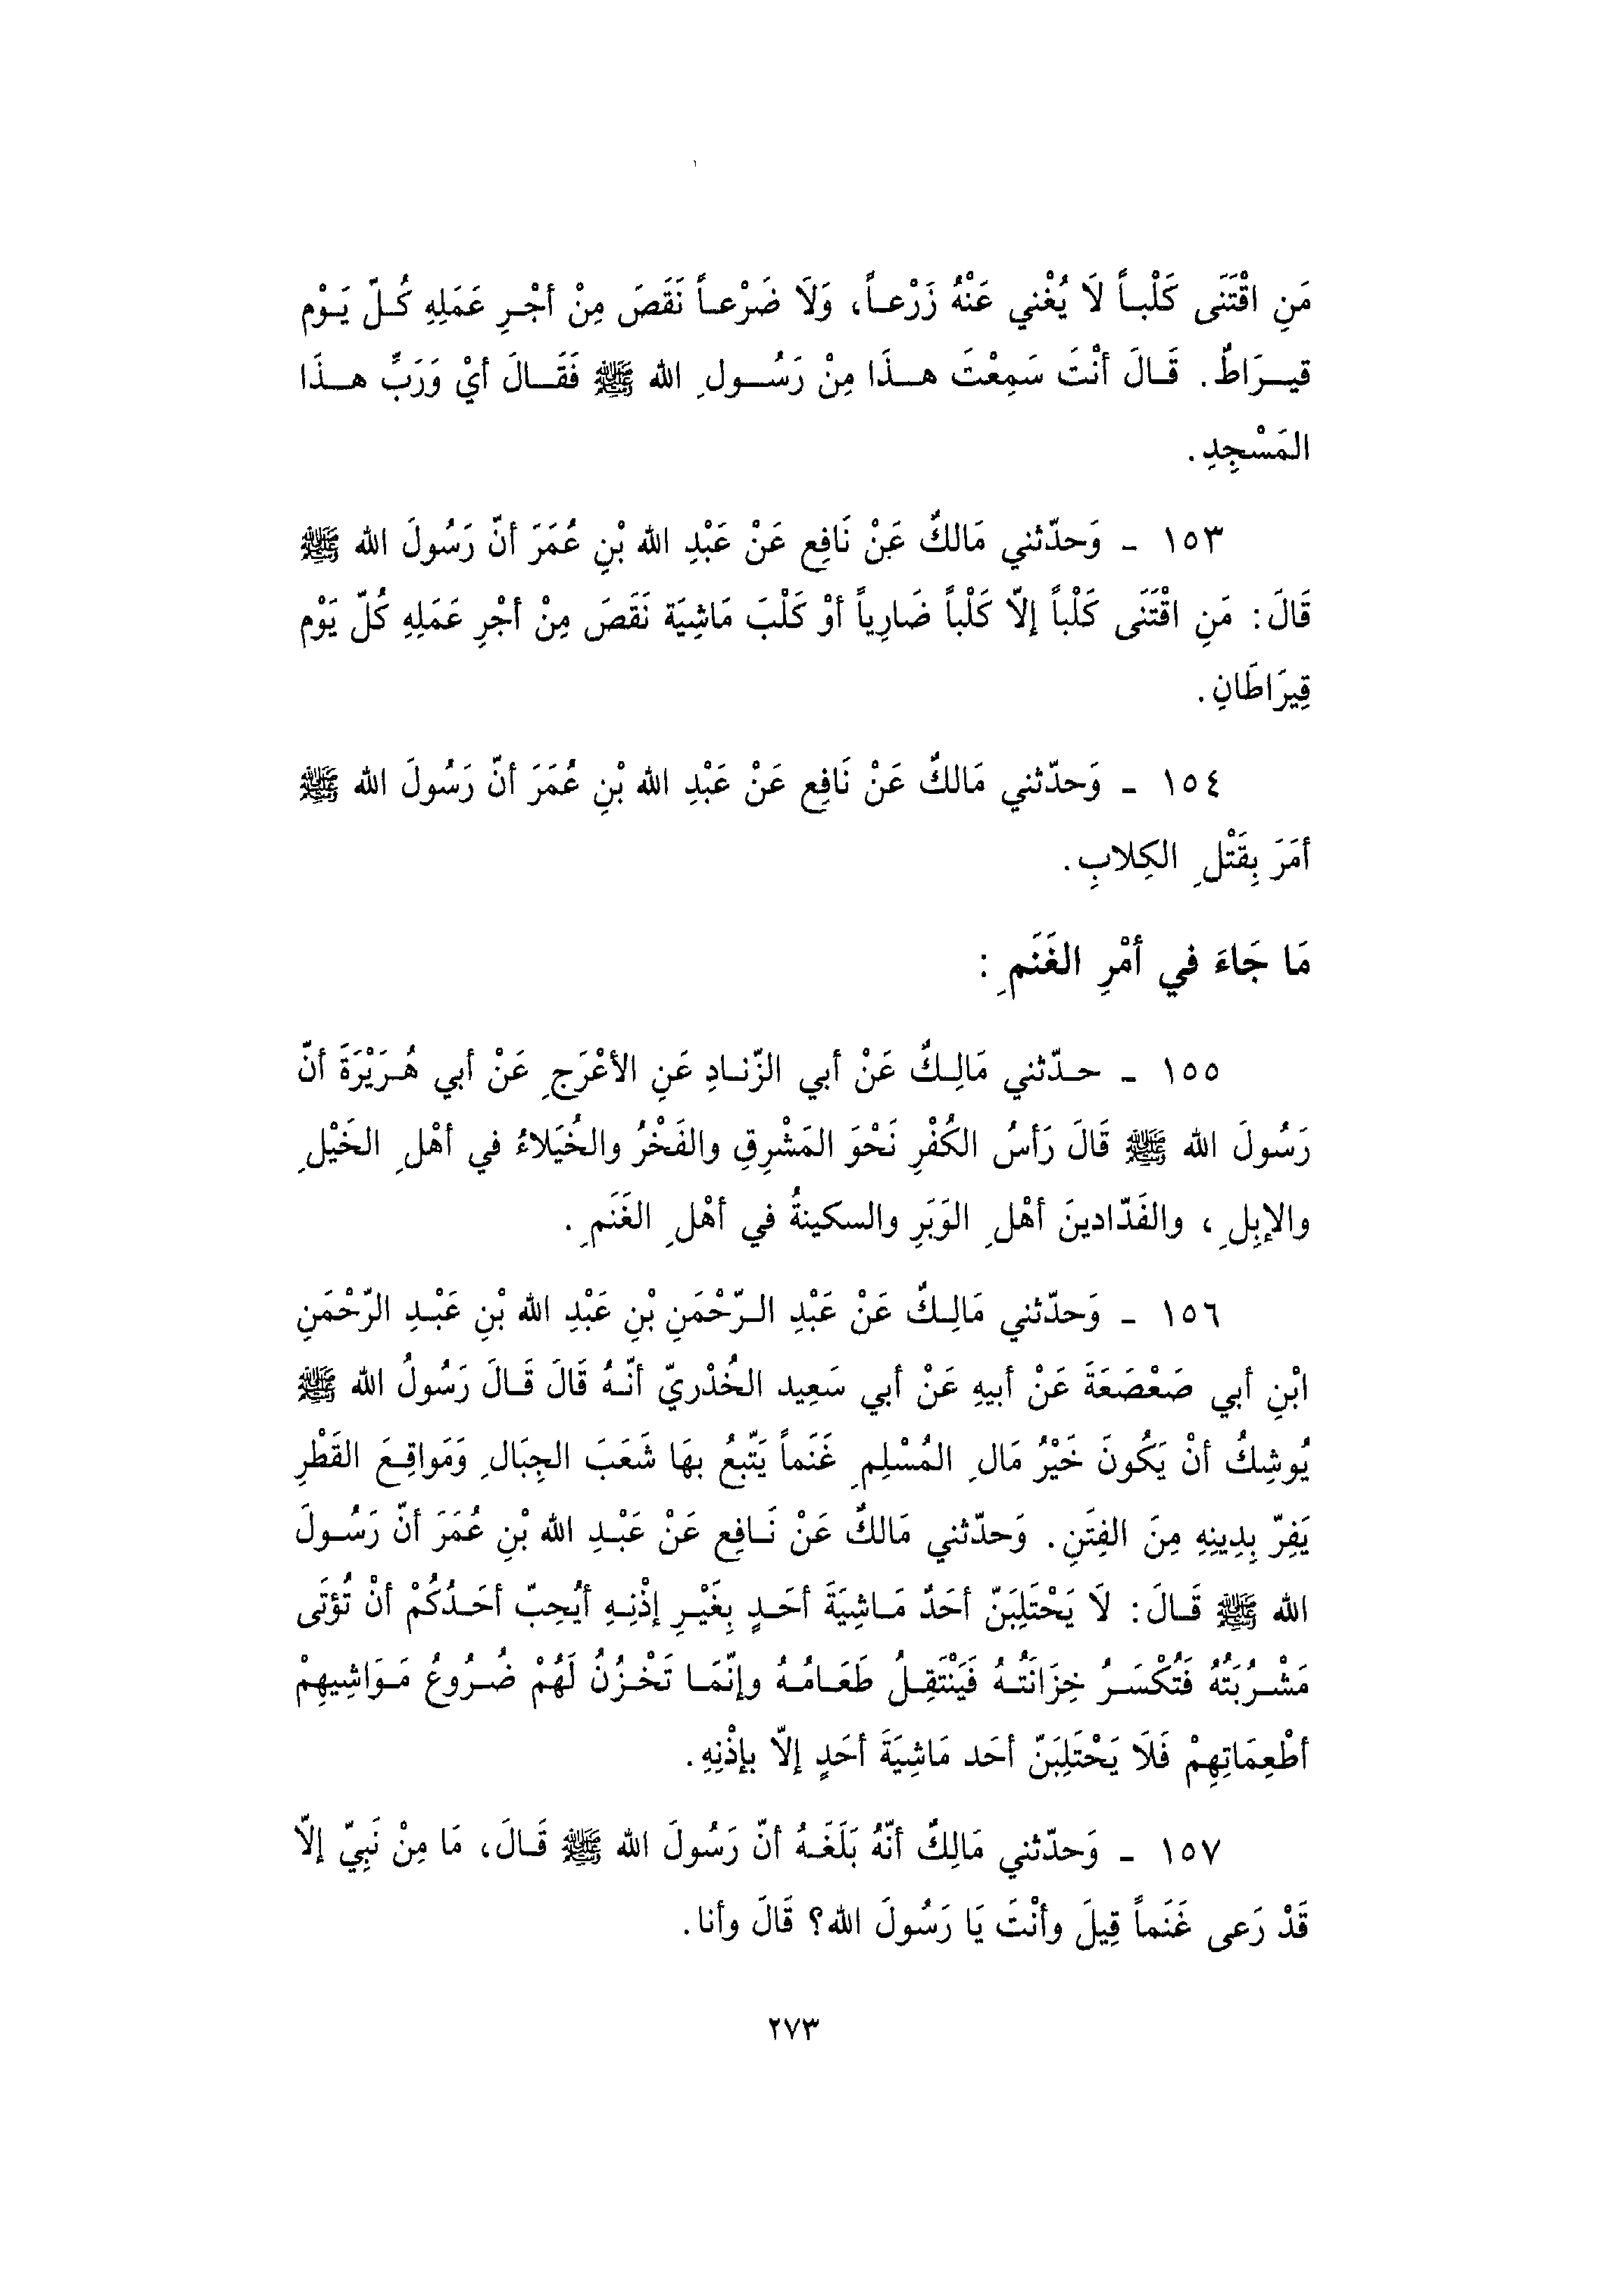 مَنِ اقْتَنَى كَلْباً لَا يُغْني عَنْهُ زَرْعاً، وَلَا ضَرْعاً نَقَصَ مِنْ أجْرِ عَمَلِهِ كُلّ يَوْم
قيرَاطٌ. قَالَ أنْتَ سَمِعْتَ هذَا مِنْ رَسُولِ الله ﷺ فَقَالَ أيْ وَرَبِّ هذَا
المَسْجِدِ.
١٥٣ - وَحدّثني مَالكٌ عَنْ نَافِع عَنْ عَبْدِ الله بْنِ عُمَرَ أنّ رَسُولَ الله ﷺ
قَالَ: مَنِ اقْتَنَى كَلْباً إلّا كَلْباً ضَارِياً أوْ كَلْبَ مَاشِيَة نَقَصَ مِنْ أجْرِ عَمَلِهِ كُلّ يَوْم
قِيرَاطَانِ.
١٥٤ - وَحدّثني مَالكٌ عَنْ نَافِع عَنْ عَبْدِ الله بْنِ عُمَرَ أنّ رَسُولَ الله ﷺ
أمَرَ بِقَتْلِ الكِلابِ.
مَا جَاءَ في أمْرِ الغَنَمِ:
١٥٥ - حدّثني مَالِكٌ عَنْ أبي الزّنادِ عَنِ الأعْرَجِ عَنْ أبي هُرَيْرَةَ أنّ
رَسُولَ الله ﷺ قَالَ رَأسُ الكُفْرِ نَحْوَ المَشْرِقِ والفَخْرُ والخُيَلاءُ في أهْلِ الخَيْلِ
والإبِلِ، والفَدّادينَ أهْلِ الوَبَرِ والسكينةُ في أهْلِ الغَنَمِ.
١٥٦ - وَحدّثني مَالِكٌ عَنْ عَبْدِ الرّحْمَنِ بْنِ عَبْدِ الله بْنِ عَبْدِ الرّحْمَنِ
ابْنِ أبي صَعْصَعَةَ عَنْ أبيهِ عَنْ أبي سَعِيد الخُدْريّ أنّهُ قَالَ قَالَ رَسُولُ الله ﷺ
يُوشِكُ أنْ يَكُونَ خَيْرُ مَالِ المُسْلِمِ غَنَماً يَتّبعُ بهَا شَعَبَ الجِبَالِ وَمَواقِعَ القَطْرِ
يَفِرّ بِدِينِهِ مِنَ الفِتَنِ. وَحدّثني مَالكٌ عَنْ نَافِع عَنْ عَبْدِ الله بْنِ عُمَرَ أنّ رَسُولَ
الله ﷺ قَالَ: لَا يَحْتَلِبَنّ أحَدٌ مَاشِيَةَ أحَدٍ بِغَيْرِ إذْنِهِ أيُحِبّ أحَدُكُمْ أنْ تُؤتَى
مَشْرُبَتُهُ فَتُكْسَرُ خِزَانَتُهُ فَيَنْتَقِلُ طَعَامُهُ وإنّمَا تَخْزُنُ لَهُمْ ضُرُوعُ مَوَاشِيهِمْ
أطْعِمَاتِهِمْ فَلَا يَحْتَلِبَنّ أحَد مَاشِيَةَ أحَدٍ إلّا بإذْنِهِ.
١٥٧ - وَحدّثني مَالِكٌ أنّهُ بَلَغَهُ أنّ رَسُولَ الله ﷺ قَالَ، مَا مِنْ نَبِيّ إلّا
قَدْ رَعى غَنَماً قِيلَ وأنْتَ يَا رَسُولَ الله؟ قَالَ وأنا.
٢٧٣